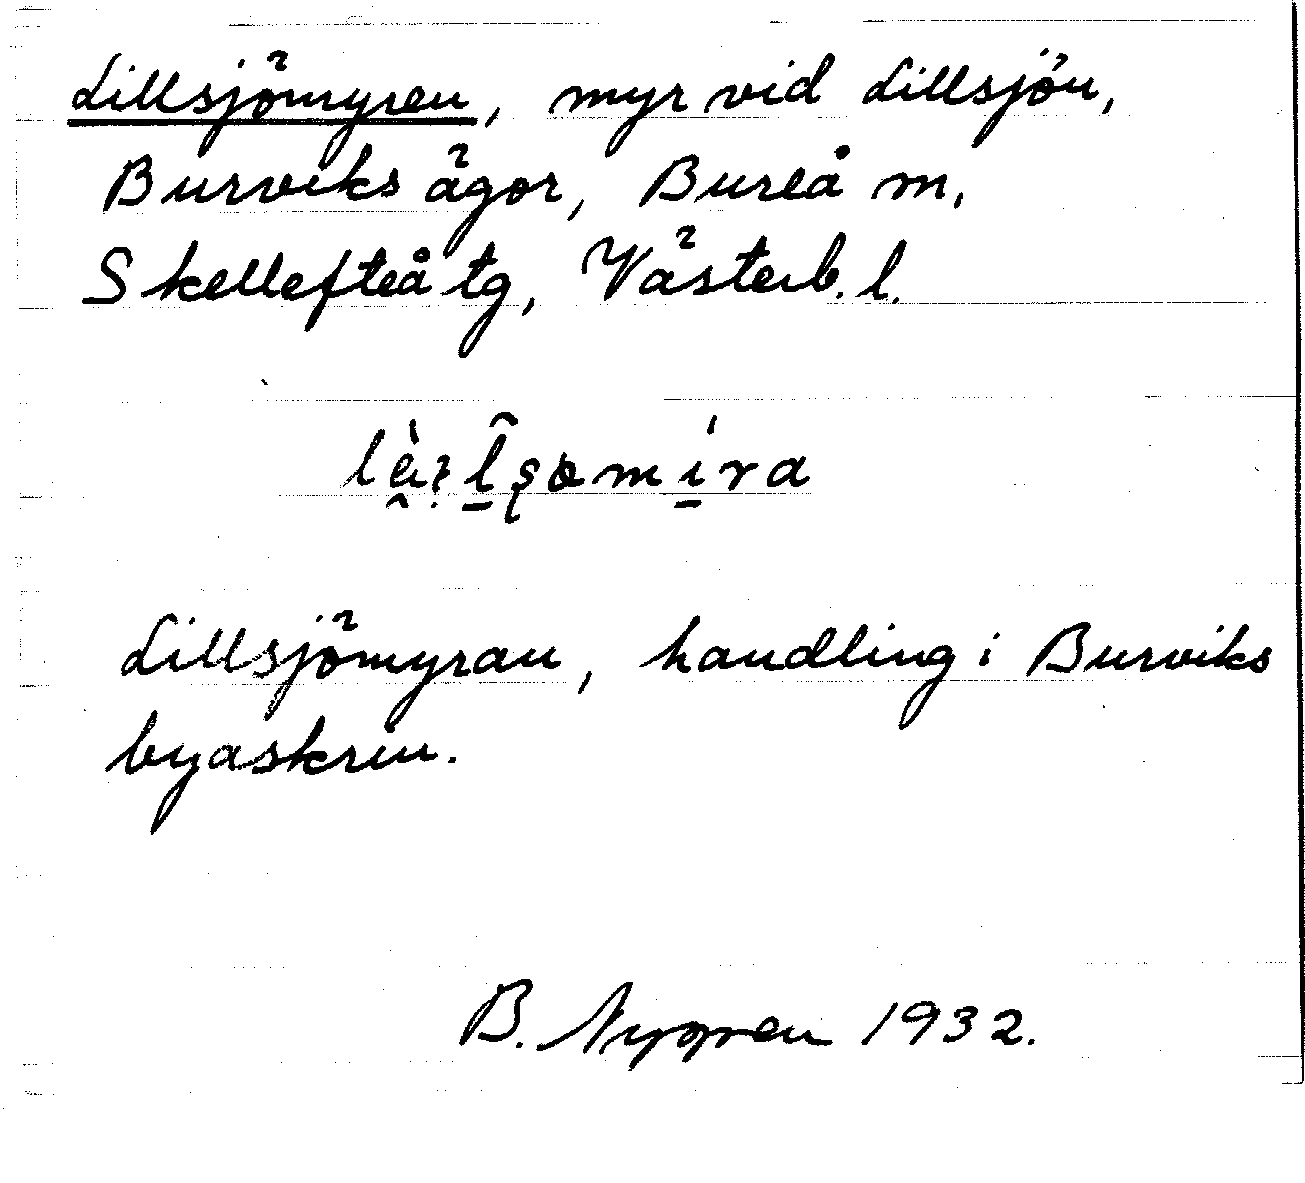 Lillsjömyren, myr vid Lillsjön,
Burviks ägor, Bureå m,
Skellefteå tg, Västerb. l.
Lillsjömyran, handling i Burviks
byaskrin.
B. Nygren 1932.